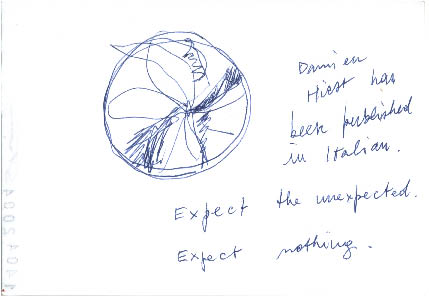 Damien
Hirst has
been published
in Italian.
Expect the unexpected.
Expect nothing.